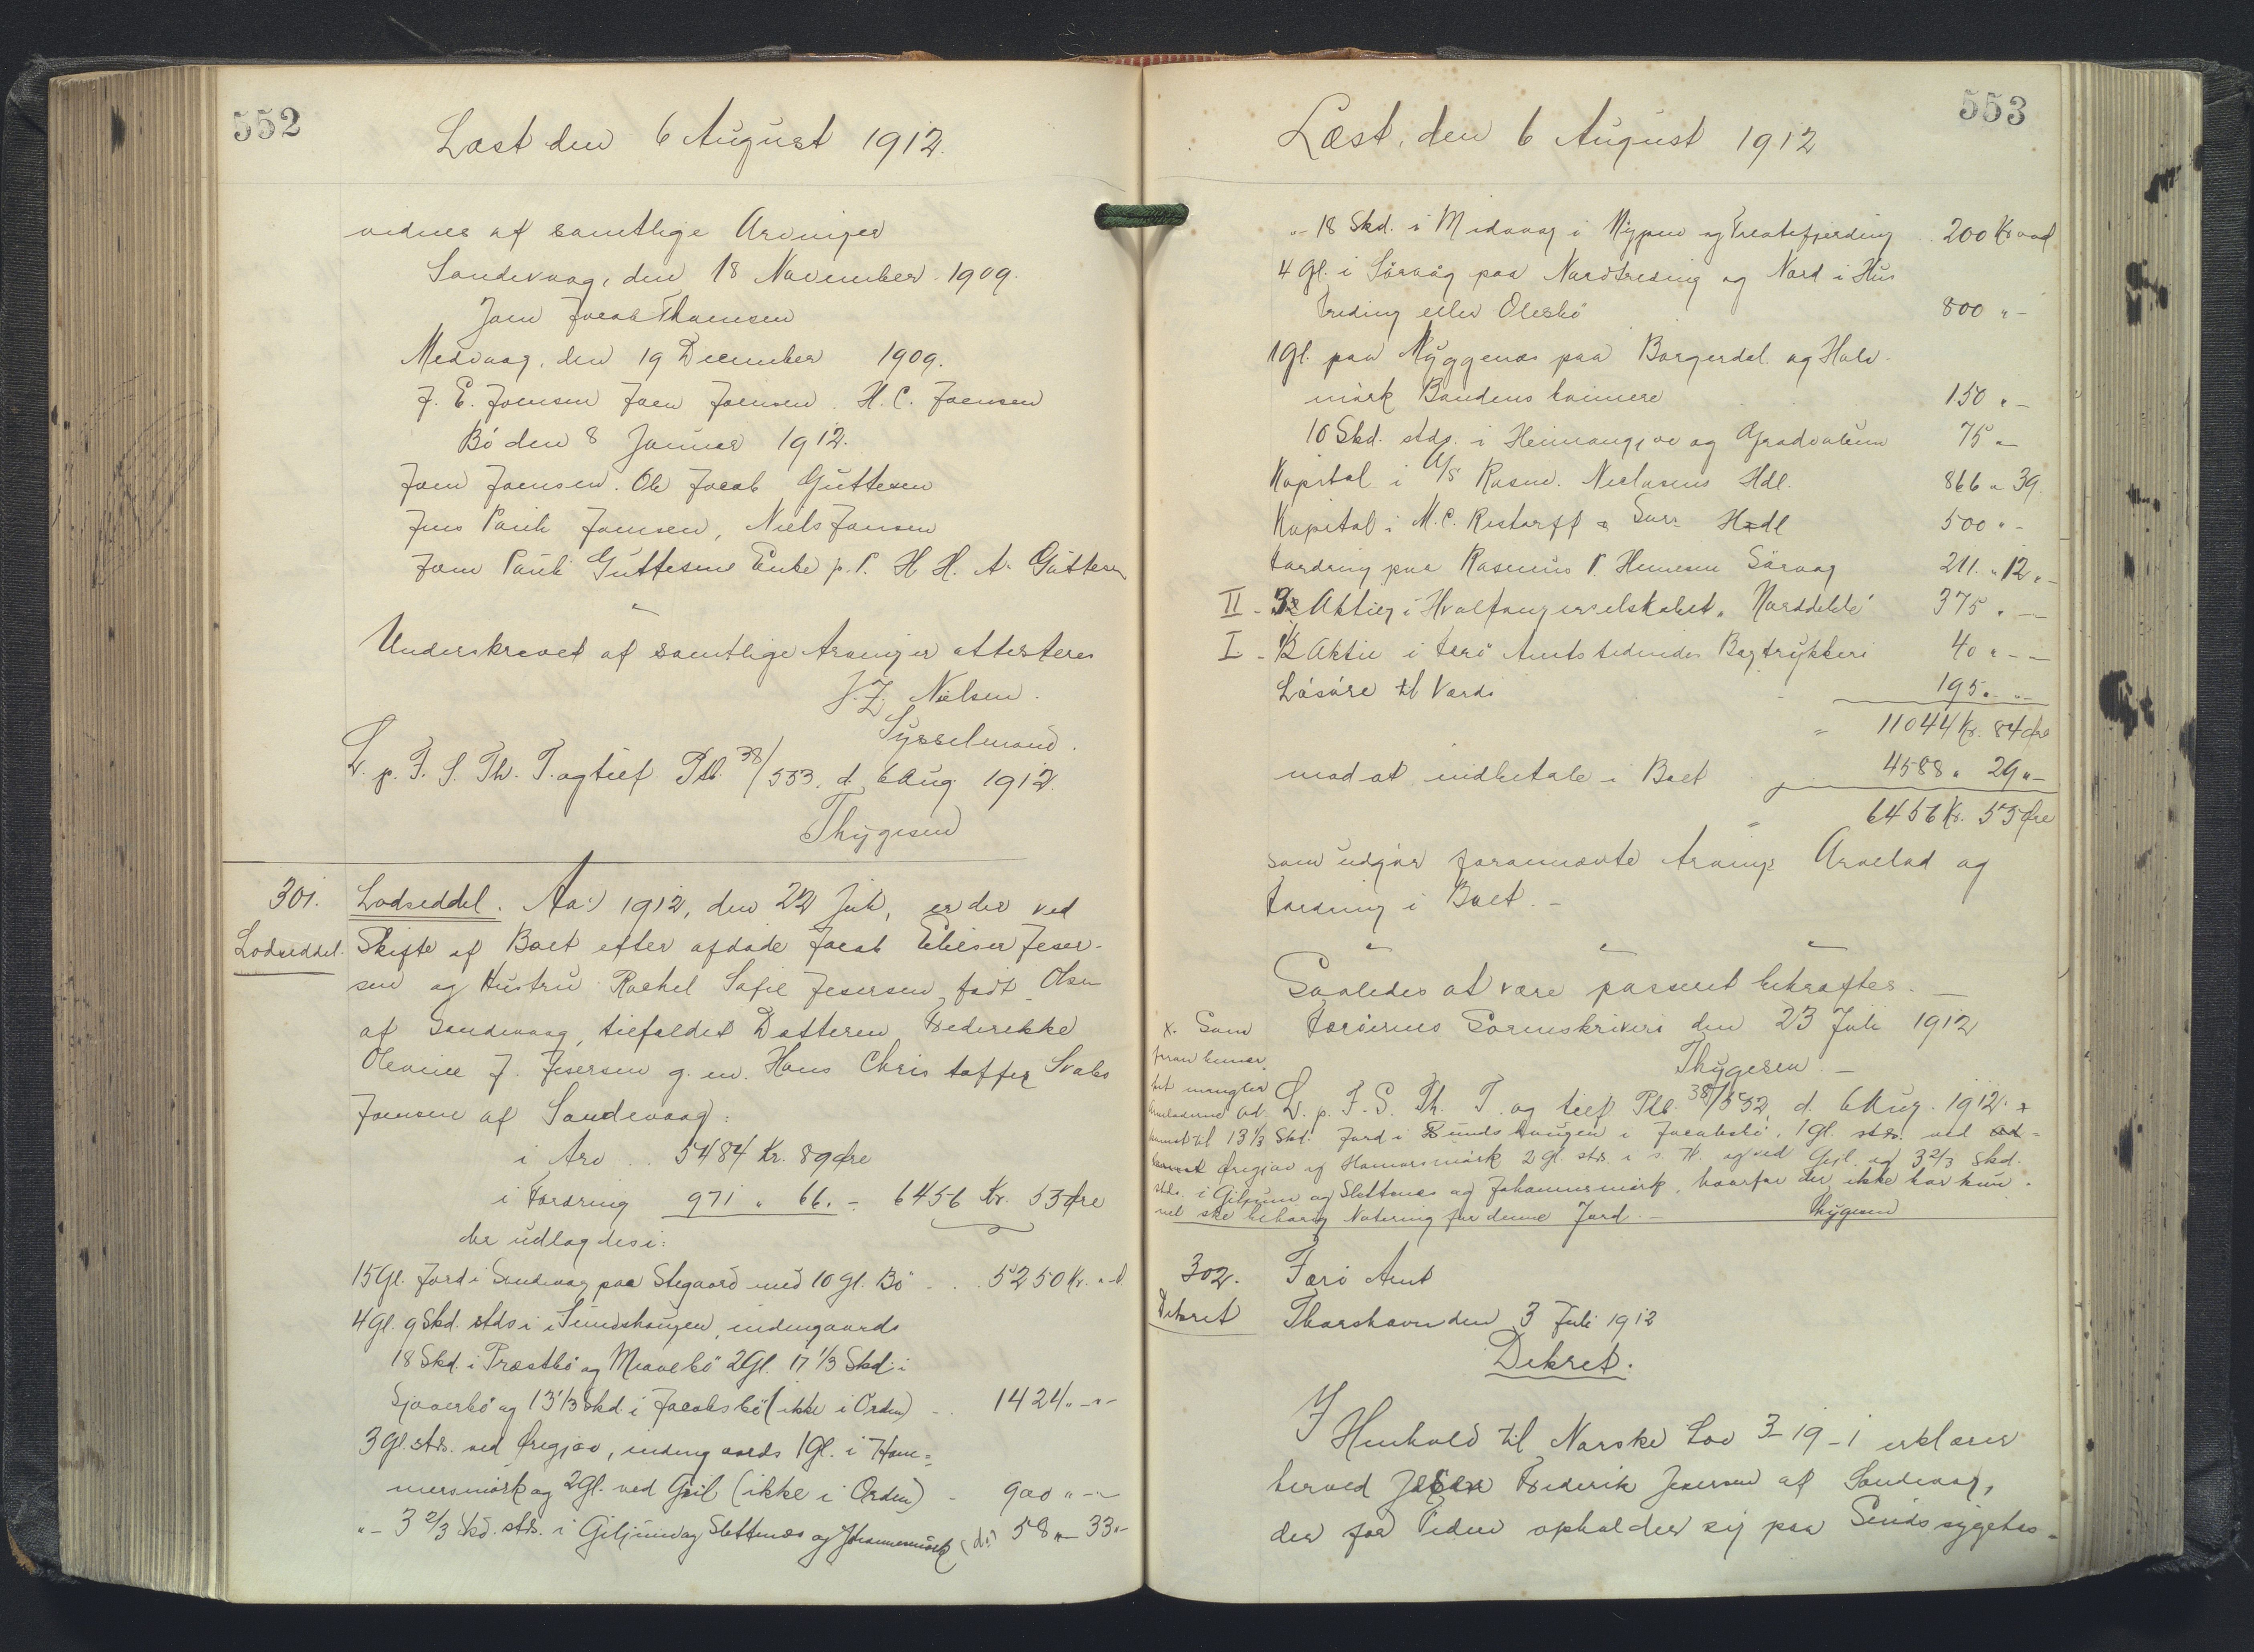 552
Læst den 6 August 1912.
vidnes af samtlige Arvinger
Sandevaag, den 18 November 1909.
Joen Jacob Thomsen
Medvaag, den 19 December 1909.
J. E. Joensen Joen Joensen. H. C. Joensen
Bö den 8 Januar 1912.
Joen Joensen. Ole Jacob Guttesen
Jens Pauli Joensen, Niels Jansen
Joen Pauli Guttesens Enke p. P. H. H. A. Guttesen
Underskrevet af samtlige Arvinger attesteres
J. Z. Nielsen.
Sysselmand.
L. p. F. S. Th. T. og tilf Ptb. 38/553. d. 6 Aug 1912.
Thygesen
301.
Lodseddel.
Lodseddel. Aar 1912, den 22 Juli, er der ved
Skifte af Boet efter afdøde Jacob Elieser Jeser-
sen og Hustru Rachel Sofie Jesersen, født Olsen
af Sandevaag, tilfaldet Datteren Frederikke
Olevine J. Jesersen g. m. Hans Christoffer Svabo
Joensen af Sandevaag:
i Arv . . 5484 Kr. 89 Øre
i Fordring 971 " 66. - 6456 Kr. 55 Øre
der udlagdes i:
15 Gl. Jord i Sandevaag paa Stegaard med 10 gl. Bö . . 5250 Kr. " Ø
4 Gl. 9 Skd. stds i Sundshougen, indengaards
18 Skd. i Præstbö og Miavebö 2 Gl. 17 1/3 Skd. i
Sjaverbö og 13 1/3 Skd i Jacobsbö (ikke i Orden) . . 1424 " - " -
3 Gl. stds. ved Øregjov, indengaards 1 Gl. i Ham-
mersmörk og 2 Gl. ved Gil (ikke i Orden) - 900 " - " -
" - 3 2/3 Skd. stds. i Giljum og Slettenæs og Johannesmörk (do) 58 " - 33 " -
553
Læst, den 6 August 1912
" - 18 Skd. i Midvaag i Nypen og Treatefjerding . . 200 Kr " Ø
4 Gl. i Sörvåg paa Nordtreding og Nord i Hus
treding eller Olesbö 800 " -
1 Gl. paa Myggenæs paa Borgerdal og Halv-
mörk Bondens 150 " -
10 Skd. stds. i Heimangjov og Gradvatum 75 " -
Kapital i A/S Rasm. Niclasens Hdl. 866 " 39.
Kapital i M. C. Restorff & Sons Hdl 500 " -
Fordring paa Rasmus P. Hennesen Sörvag 211. " 12 " -
II - 3 Aktier i Hvalfangerselskabet "Norddeble" 375 " -
I. - 1/2 Aktie i Færö Amtstidendes Bogtrykkeri 40 " - -
Lösöre til Værdi 195 " - " -
= 11044 Kr. 84 Øre
mod at indbetale i Boet 4588 " 29 " -
= 6456 Kr. 55 Øre
som udgör forannævnte Arvings Arvelod og
Fordring i Boet. -
Saaledes at være passeret bekræftes. -
Færöernes Sorenskriveri den 23 Juli 1912
Thygesen. -
L. p. F. S. Th. T. og tilf Ptb. 38/552, d. 6 Aug. 1912. x
x. Som
foran bemær-
ket mangler
Arveladerne Ad-
komst til 13 1/3 Skd. Jord i Sundshaugen i Jacobsbö, 1 Gl. stds. ved
Øregjov og Hamersmörk 2 gl. stds. i s. H. og ved Gil. og 3 2/3 Skd.
stds. i Giljum og Slettenæs og Johannesmörk, hvorfor der ikke har kun-
net ske behørig Notering for denne Jord. - Thygesen
302.
Dekret
Færö Amt
Thorshavn den 3 Juli 1912
Dekret.
I Henhold til Norske Lov 3-19-1 erklærer
herved Jeser Frederik Jesersen af Sandevaag,
der for Tiden opholder sig paa Sindssygehos-